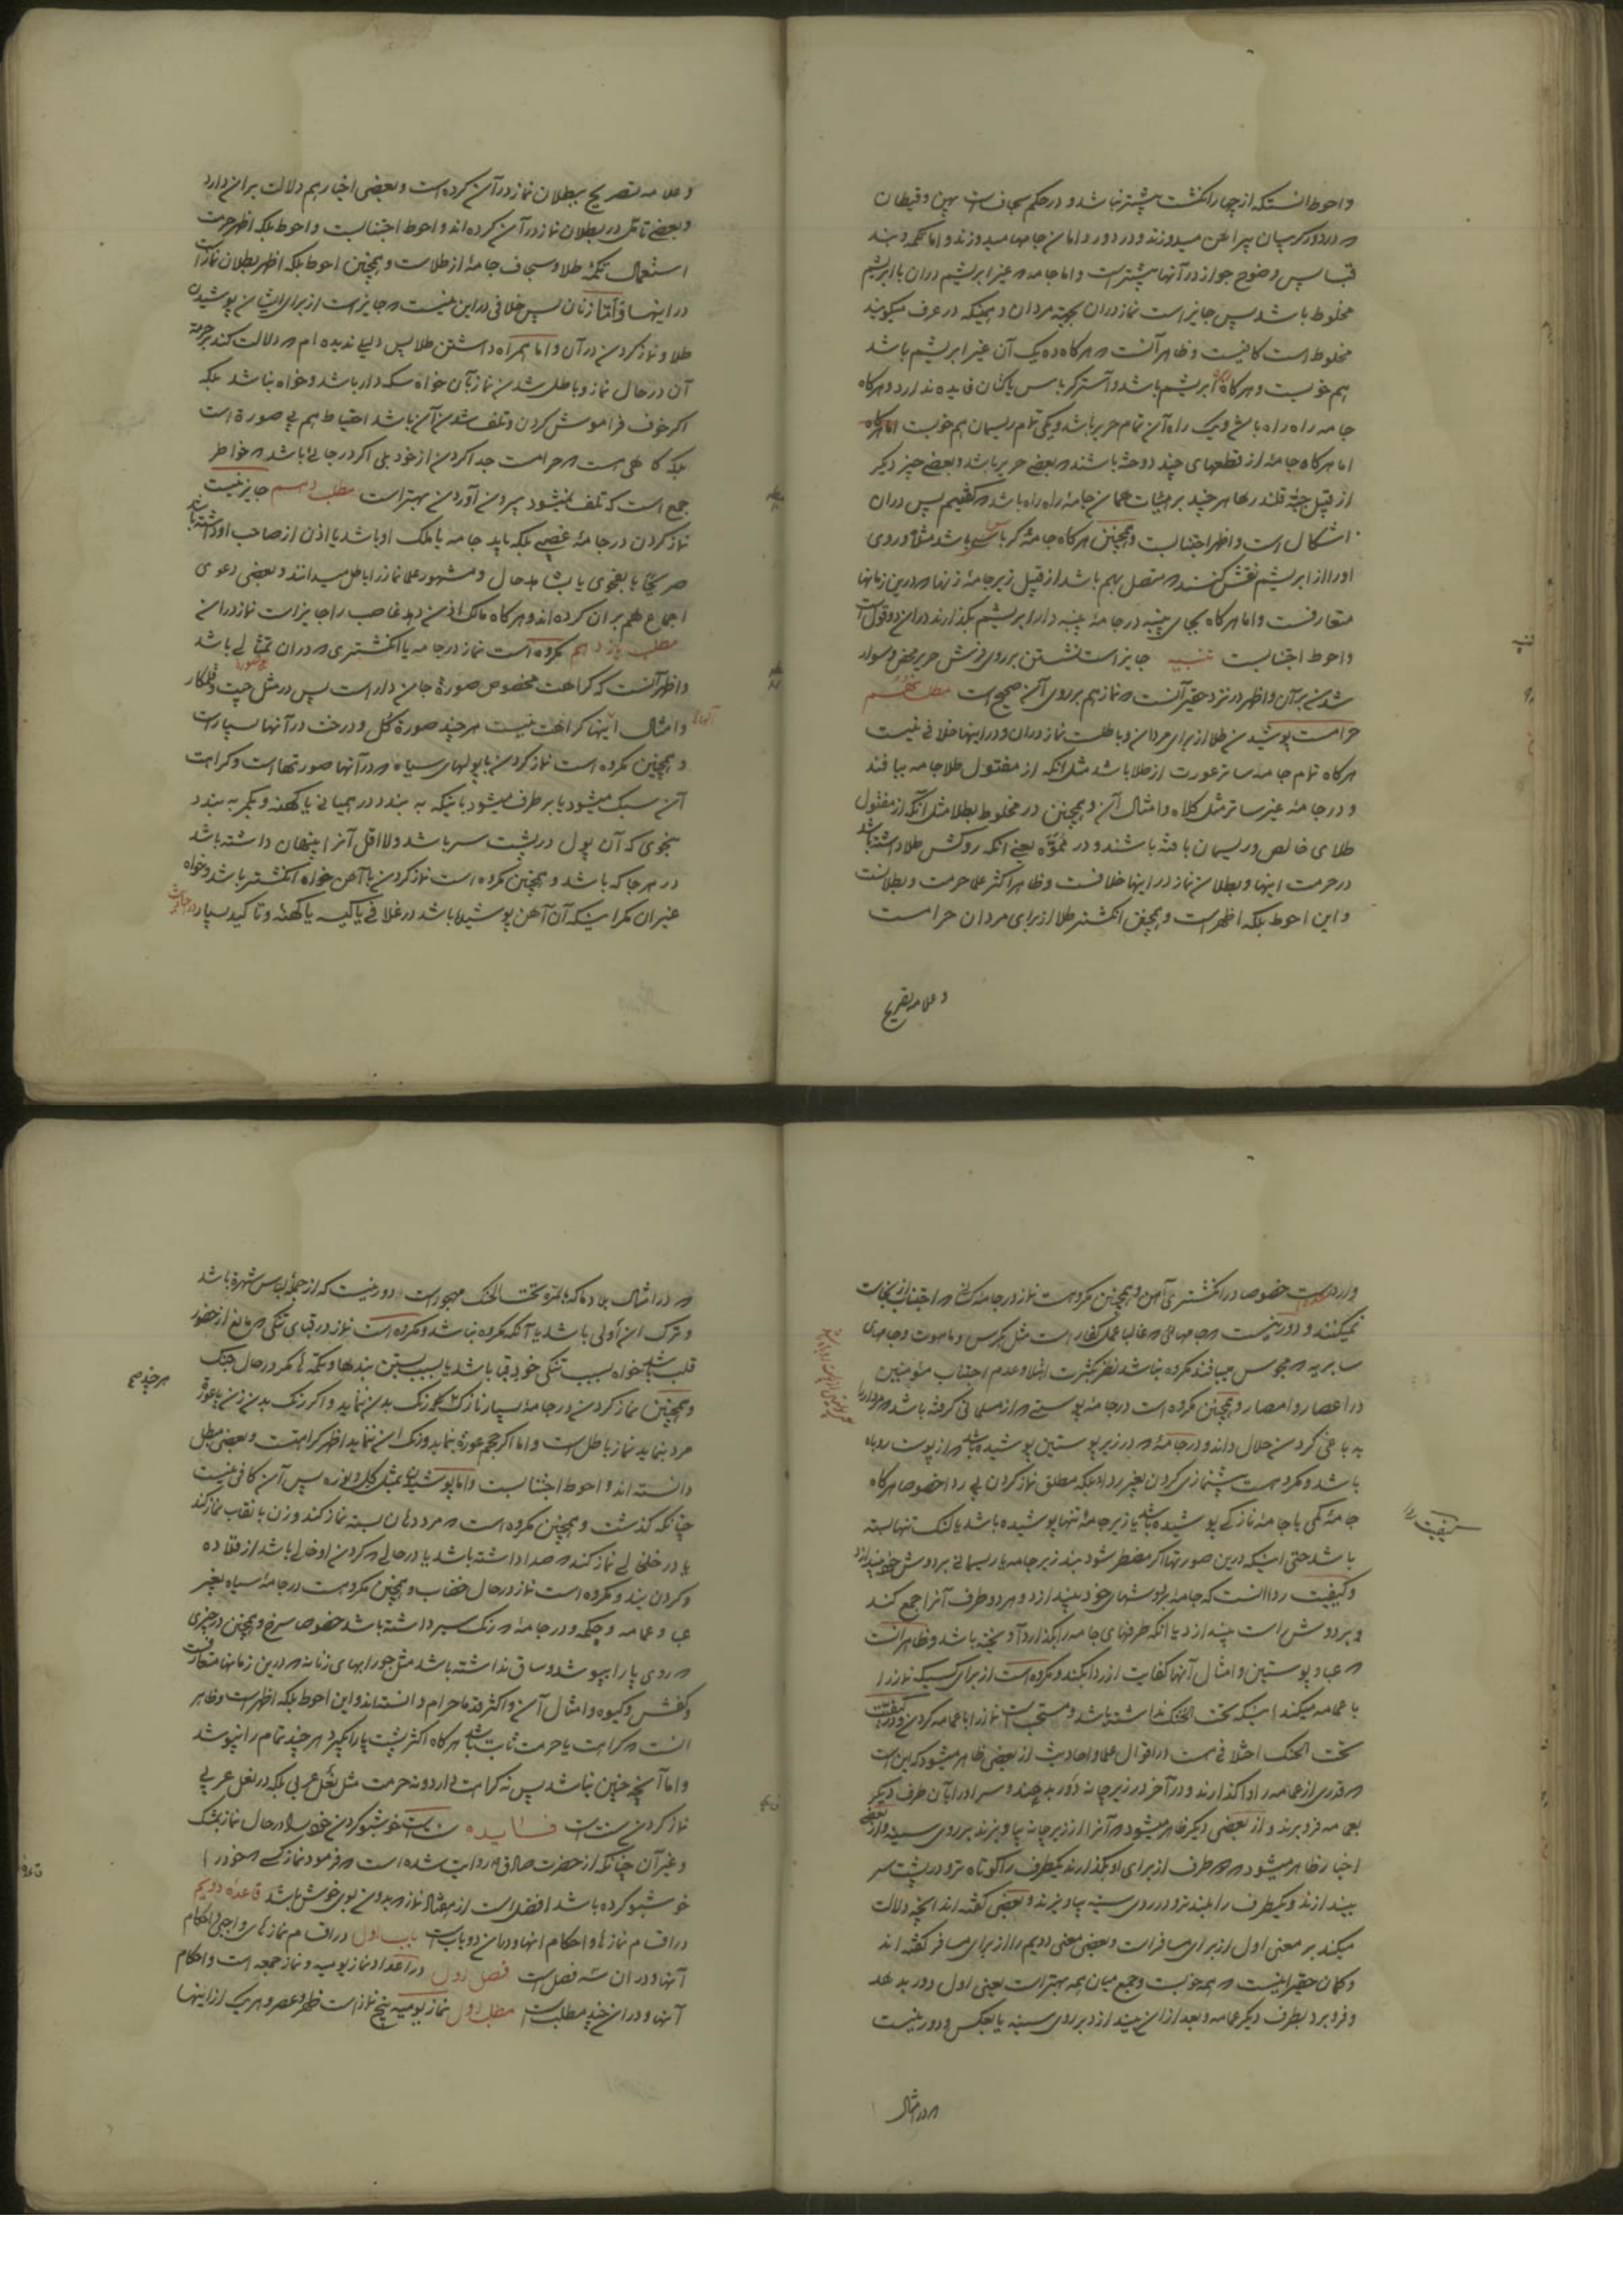 واحوط انستکه از چهار انکشت پیشتر نباشد و در حکم سجافست پهن و قیطان
که در دور کریبان پیراهن میدوزند و در دور دامان جامها میدوزند و اما تکمه و بند
قبا پس وضوح جواز در آنها پیشتر است و اما جامه که غیر ابریشم در ان با ابریشم
مخلوط باشد پس جایز است نماز در ان بجهته مردان و همینکه در عرف میکویند
مخلوط است کافیست و ظاهر آنست که هرکاه ده یک آن غیر ابریشم باشد
هم خوبست و هرکاه ابریشم باشد و آستر کرباس یا کتان فایده ندارد و هرکاه
جامه راه راه باشد و یک راه آن تمام حریر باشد و یکی تمام ریسمان هم خوبست
اما هرکاه جامهٔ از قطعهای چند دوخته باشند که بعضی حریر باشد و بعضی چیز دیکر
از قبیل جبّهٔ قلندرها هرچند بر هیئات همان جامهٔ راه راه باشد که کفتیم پس در ان
اشکال است و اظهر اجتنابست و همچنین هرکاه جامهٔ کرباسی باشد مثلا و روی
او را از ابریشم نقش کنند که متصل بهم باشد از قبیل زیر جامهٔ زنها که درین زمانها
متعارفست و اما هرکاه بجای پنبه در جامهٔ پنبه دار ابریشم بکذارند در ان دو قول است
واحوط اجتنابست تنبیه جایز است نشستن بر روی فرش حریر محض و سوار
شدن بر آن و اظهر در نزد حقیر آنست که نماز هم بر روی آن صحیح است مطلب نهم
حرامست پوشیدن طلا از برای مردان و باطلست نماز در ان و در اینها خلافی نیست
هرکاه تمام جامه ساتر عورت از طلا باشد مثل انکه از مفتول طلا جامه ببافند
و در جامهٔ غیر ساتر مثل کلاه و امثال آن و همچنین در مخلوط بطلا مثل آنکه از مفتول
طلای خالص و ریسمان بافته باشند و در مموّه یعنی انکه روکش طلا داشته باشد
در حرمت اینها و بطلان نماز در اینها خلافست و ظاهر اکثر علما حرمت و بطلانست
و این احوط بلکه اظهر است و همچنین انکشتر طلا از برای مردان حرامست
و علامه تصریح
و علامه تصریح ببطلان نماز در آن کرده است و بعضی اخبار هم دلالت بر ان دارد
و بعضی تامّل در بطلان نماز در آن کرده اند و احوط اجتنابست و احوط بلکه اظهر حرمت
استعمال تکمهٔ طلا و سجاف جامهٔ از طلاست و همچنین احوط بلکه اظهر بطلان نماز است
در اینها و امّا زنان پس خلافی در این نیست که جایز است از برای ایشان پوشیدن
طلا و نماز کردن در آن و اما همراه داشتن طلا پس دلیلی ندیده ام که دلالت کند بر حرمة
آن در حال نماز و باطل شدن نماز بآن خواه سکه دار باشد و خواه نباشد بلکه
اکر خوف فراموش کردن و تلف شدن آن باشد احتیاط هم بی صورة است
بلکه کاهی هست که حرامست جدا کردن از خود بلی اکر در جائی باشد که خواطر
جمع است که تلف نمیشود بیرون آوردن بهتر است مطلب دهم جایز نیست
نماز کردن در جامهٔ غصبی بلکه باید جامه یا ملک او باشد یا اذن از صاحب او داشته باشد
صریحًا یا بفحوی یا بشاهد حال و مشهور علما نماز را باطل میدانند و بعضی دعوی
اجماع هم بر ان کرده اند و هرکاه مالک اذن دهد غاصب را جایز است نماز در ان
مطلب یازدهم مکروه است نماز در جامه یا انکشتری که در ان تمثالی باشد
و اظهر آنست که کراهت مخصوص صورة جان دار است پس در مثل چیت و قلمکار
و امثال اینها کراهت نیست هرچند صورة کل و درخت در آنها بسیار است
و همچنین مکروه است نماز کردن با پولهای سیاه که در آنها صورتهاست و کراهت
آن سبک میشود یا برطرف میشود باینکه به بندد در همیانی یا کهنه و بکمر به بندد
بنحوی که آن پول در پشت سر باشد و لااقل آنرا پنهان داشته باشد
در هر جا که باشد و همچنین مکروه است نماز کردن با آهن خواه انکشتر باشد و خواه
غیر ان مکر اینکه آن آهن پوشیده باشد در غلافی یا کیسه یا کهنهٔ و تاکید بسیار در احادیث
وارد شده است خصوصا در انکشتری آهن و همچنین مکروهست نماز در جامهٔ کسانی که اجتناب از نجاسات
نمیکنند و دور نیست که جامهائی که غالبا عمل کفار است مثل کرمس و ماهوت و جامهای
سابریه که مجوس میبافند مکروه نباشد نظر بکثرت ابتلا و عدم اجتناب مؤمنین
در اعصار و امصار و همچنین مکروه است در جامهٔ پوستی که از مسلمانی کرفته باشد که مردار را
به دباغی کردن حلال داند و در جامهٔ که در زیر پوستین پوشیده باشد که از پوست روباه
باشد و مکروهست پیشنمازی کردن بغیر ردا بلکه مطلق نماز کردن بی ردا خصوصا هرکاه
جامهٔ کمی یا جامهٔ نازکی پوشیده باشد یا زیر جامهٔ تنها پوشیده باشد یا لنک تنها بسته
باشد حتی اینکه درین صورتها اکر مضطر شود بند زیر جامه یا ریسمانی بر دوش خود بیندازد
و کیفیت ردا انست که جامه را بر دوشهای خود بیندازد و هر دو طرف آنرا جمع کند
و بر دوش راست بیندازد یا انکه طرفهای جامه را بکذارد آویخته باشد و ظاهر انست
که عبا و پوستین و امثال آنها کفایت از ردا بکند و مکروه است از برای کسیکه نماز را
با عمامه میکند اینکه تحت الحنک نداشته باشد و مستحب است نماز را با عمامه کردن و در کیفیت
تحت الحنک اختلافی هست در اقوال علما و احادیث از بعضی ظاهر میشود که این است
که قدری از عمامه را واکذارند و در آخر در زیر چانه دور بدهند و سر او را بآن طرف دیکر
عمامه فرو برند و از بعضی دیکر ظاهر میشود که آنرا از زیر چانه بیاویزند بر روی سینه و از بعضی
اخبار ظاهر میشود که دو طرف از برای او بکذارند یکطرف را کوتاه تر و در پشت سر
بیندازند و یکطرف را بلند تر و در روی سینه بیاویزند و بعضی کفته اند انچه دلالت
میکند بر معنی اول از برای مسافر است و بعضی معنی دویم را از برای مسافر کفته اند
و کمان حقیر اینست که همه خوبست و جمع میان همه بهتر است یعنی اول دور بدهد
و فرو برد بطرف دیکر عمامه و بعد از ان بیندازد بر روی سینه یا بعکس و دور نیست
کیفیت ردا
که در امثال
که در امثال بلاد ما که بالمره تحت الحنک مهجور است دور نیست که از جملهٔ لباس شهرة باشد
و ترک ان اولی باشد یا آنکه مکروه نباشد و مکروه است نماز در قبای تنکی که مانع از حضور
قلب باشد خواه بسبب تنکی خود قبا باشد یا بسبب بستن بندها و تکمه ها مکر در حال جنک
و همچنین نماز کردن در جامهٔ بسیار نازک که رنک بدن ننماید و اکر رنک بدن زن یا عورة
مرد بنماید نماز باطل است و اما اکر حجم عورة بنماید و رنک ان ننماید اظهر کراهتست و بعضی مبطل
دانسته اند و احوط اجتنابست و اما پوشیدن بمثل کل و نوره پس آن کافی نیست
چنانکه کذشت و همچنین مکروه است که مرد دهان بسته نماز کند و زن با نقاب نماز کند
یا در خلخالی نماز کند که صدا داشته باشد یا در حالی که کردن او خالی باشد از قلاده
و کردن بند و مکروه است نماز در حال خضاب و همچنین مکروهست در جامهٔ سیاه بغیر
عبا و عمامه و چکمه و در جامهٔ که رنک سیر داشته باشد خصوصا سرخ و همچنین در چیزی
که روی پا را بپوشد و ساق نداشته باشد مثل جورابهای زنانه که درین زمانها متعارفست
و کفش و کیوه و امثال آن و اکثر قدما حرام دانسته اند و این احوط بلکه اظهر است و ظاهر
انست که کراهت یا حرمت ثابت باشد هرکاه اکثر پشت پا را بکیرد هرچند تمام را نپوشد
و اما آنچه چنین نباشد پس نه کراهت دارد و نه حرمت مثل نعل عربی بلکه در نعل عربی
نماز کردن سنت است فــایده سنت است خوشبو کردن خود را در حال نماز بمشک
و غیر آن چنانکه از حضرت صادق ع روایت شده است که فرمود نماز کسی که خود را
خوشبو کرده باشد افضل است از هفتاد نماز که بدون بوی خوش باشد قاعدهٔ دویم
در اقسام نمازها و احکام انها و در ان دو باب است باب اول در اقسام نمازهای واجبی و احکام
آنها و در ان سه فصل است فصل اول در اعداد نماز یومیه و نماز جمعه است و احکام
آنها و در ان چند مطلب است مطلب اول نماز یومیه پنج نماز است ظهر و عصر و هر یک از اینها